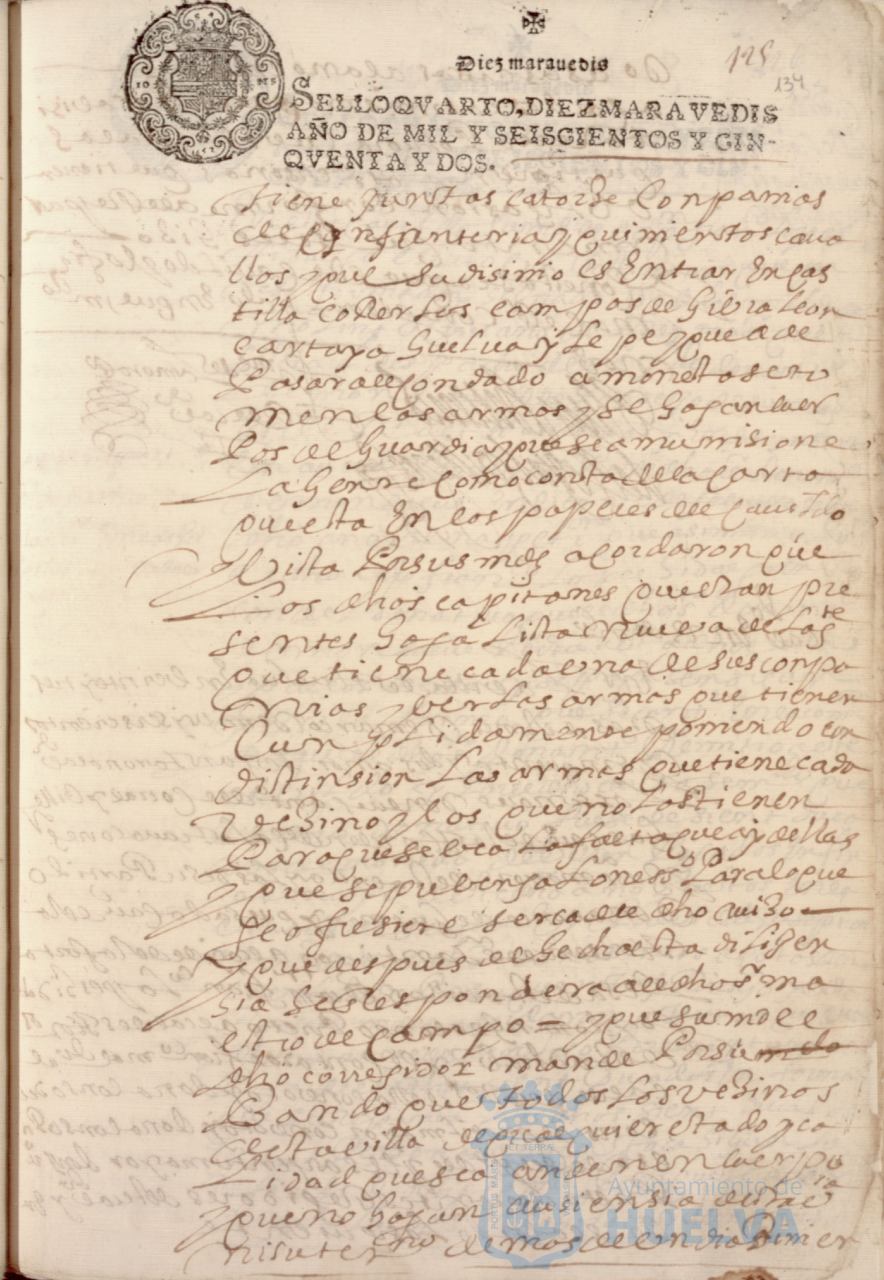 Diez maravedis
125
134
SELLO QVARTO, DIEZ MARAVEDIS
AÑO DE MIL Y SEISCIENTOS Y CIN-
QVENTA Y DOS.
tiene juntas catorse Conpanias
de Ynfanteria y quinientos cava
llos y que su disinio es Entrar En cas
tilla correr los campos de Gibraleon
cartaya Guelva y Lepe y que a de
Pasar a el condado a monesta se to
men las armas y se hagan cuer
Pos de Guardia y que se amunisione
La Gente como consta de la carta
que esta En los papeles del cavildo
Vista Por sus mds acordaron que
Los dhos capitanes que estan pre
sentes haga Lista nueva de la gte
que tiene cada una de sus conpa
nias y ver las armas que tienen
Cunplidamente poniendo con
distinsion Las armas que tiene cada
Vezino y los que no Las tienen
Para que se vea La falta que ay dellas
y que se prevenga Para lo que
se ofresiere serca de dho aviso
y que despues de hecha esta diligen
sia se Respondera a el dho sr ma
estro de campo = y que su md el
dho corregidor mande Por su
Bando que todos Los vezinos
desta villa de qualquier estado y ca
Lidad que sea anden en cuerpo
y que no hagan ausensia della
ni su termino
Ayuntamiento de
HUELVA